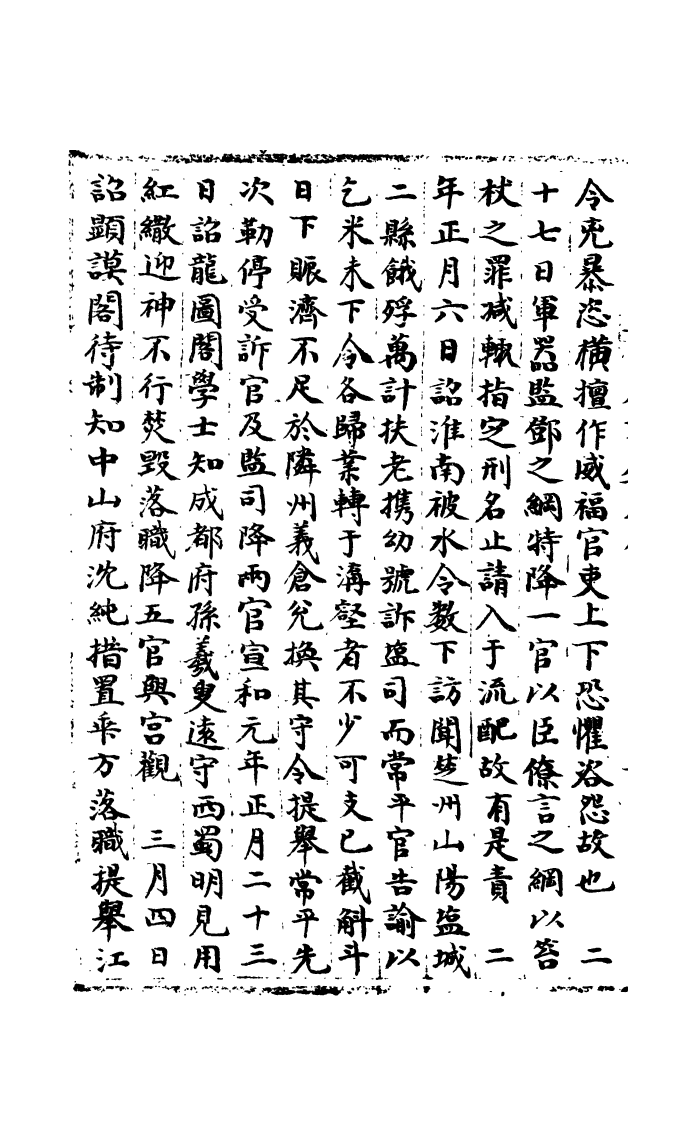 令兇暴恣橫擅作威福官吏上下恐懼咨怨故也　二
十七日軍器監鄧之綱特降一官以臣僚言之綱以笞
杖之罪减輙指定刑名止請入于流配故有是責　二
年正月六日詔淮南被水令数下訪聞楚州山陽塩城
二縣餓殍萬計扶老携幼號訴監司而常平官告諭以
乞米未下令各歸業轉于溝壑者不少可支已截斛斗
日下賑濟不足於隣州義倉兌換其守令提舉常平先
次勒停受訴官及監司降兩官宣和元年正月二十三
日詔龍圖閣學士知成都府孫羲叟遠守西蜀明見用
紅繖迎神不行焚毀落職降五官與宮觀　三月四日
詔顯謨閣待制知中山府沈純措置乖方落職提舉江